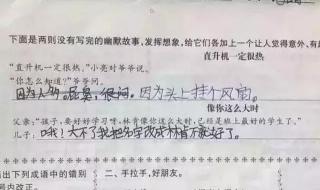 下面是两则没有写完的幽默故事,发挥想象,给它们各加上一个让人觉得意外、有
直升机一定很热
"直升机一定很热。"小亮对爷爷说。
"你怎么知道?"爷爷问。
因为人多。屁臭,很闷。因为头上挂个风扇。
像你这么大时
父亲:"孩子,要好好学习呀,林肯像你这么大时,已经是班上最好的学生了。"
儿子:哦!大不了我把名字改成林肯不就好了。
出下列成语中的错别
二、手拉手,好朋友。
号内改正。